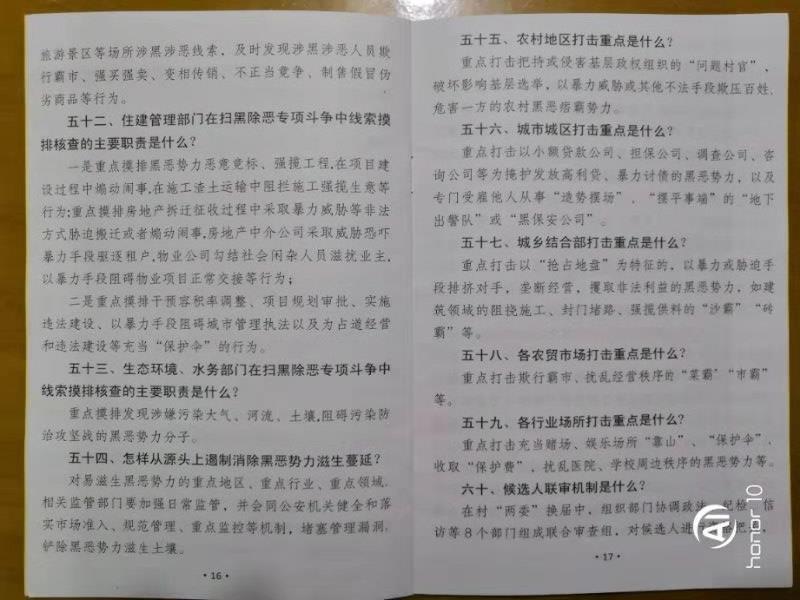 旅游景区等场所涉黑涉恶线索，及时发现涉黑涉恶人员欺
行霸市、强买强卖、变相传销、不正当竞争、制售假冒伪
劣商品等行为。
五十二、住建管理部门在扫黑除恶专项斗争中线索摸
排核查的主要职责是什么？
一是重点摸排黑恶势力恶意竞标、强揽工程,在项目建
设过程中煽动闹事,在施工渣土运输中阻拦施工强揽生意等
行为;重点摸排房地产拆迁征收过程中采取暴力威胁等非法
方式胁迫搬迁或者煽动闹事,房地产中介公司采取威胁恐吓
暴力手段驱逐租户,物业公司勾结社会闲杂人员滋扰业主,
以暴力手段阻碍物业项目正常交接等行为；
二是重点摸排干预容积率调整、项目规划审批、实施
违法建设、以暴力手段阻碍城市管理执法以及为占道经营
和违法建设等充当“保护伞”的行为。
五十三、生态环境、水务部门在扫黑除恶专项斗争中
线索摸排核查的主要职责是什么？
重点摸排发现涉嫌污染大气、河流、土壤,阻碍污染防
治攻坚战的黑恶势力分子。
五十四、怎样从源头上遏制消除黑恶势力滋生蔓延？
对易滋生黑恶势力的重点地区、重点行业、重点领域,
相关监管部门要加强日常监管，并会同公安机关健全和落
实市场准入、规范管理、重点监控等机制，堵塞管理漏洞,
铲除黑恶势力滋生土壤。
·16·
五十五、农村地区打击重点是什么？
重点打击把持或侵害基层政权组织的“问题村官”，
破坏影响基层选举，以暴力威胁或其他不法手段欺压百姓,
危害一方的农村黑恶痞霸势力。
五十六、城市城区打击重点是什么？
重点打击以小额贷款公司、担保公司、调查公司、咨
询公司等为掩护发放高利贷、暴力讨债的黑恶势力，以及
专门受雇他人从事“造势摆场”、“摆平事端”的“地下
出警队”或“黑保安公司”。
五十七、城乡结合部打击重点是什么？
重点打击以“抢占地盘”为特征的，以暴力或胁迫手
段排挤对手，垄断经营，攫取非法利益的黑恶势力，如建
筑领域的阻挠施工、封门堵路、强揽供料的“沙霸”“砖
霸”等。
五十八、各农贸市场打击重点是什么？
重点打击欺行霸市、扰乱经营秩序的“菜霸”“市霸”
等。
五十九、各行业场所打击重点是什么？
重点打击充当赌场、娱乐场所“靠山”、“保护伞”，
收取“保护费”，扰乱医院、学校周边秩序的黑恶势力等。
六十、候选人联审机制是什么？
在村“两委”换届中，组织部门协调政法、纪检、信
访等8个部门组成联合审查组，对候选人进行
·17·
AI
honor 10